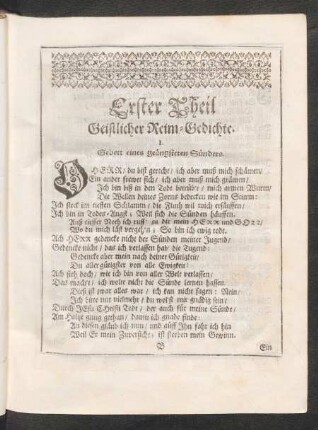 Erster Theil
Geistlicher Reim-Gedichte.
I.
Gebett eines geängsteten Sünders.
O HERR / du bist gerecht; ich aber muß mich schämen /
Ein ander frewet sich / ich aber muß mich grämen /
Ich bin biß in den Todt betrübt / mich armen Wurm /
Die Wellen deines Zorns bedecken wie im Sturm:
Ich steck im tieffen Schlamm / die Fluth wil mich ersäuffen /
Ich bin in Todes-Angst / Weil sich die Sünden häuffen.
Auß tieffer Noth ich ruff zu dir mein HERR und GOtt /
Wo du mich läst vergehn / So bin ich ewig todt.
Ach HErr gedencke nicht der Sünden meiner Jugend /
Gedencke nicht / das ich verlassen hab die Tugend;
Gedencke aber mein nach deiner Gütigkeit /
Du aller gütigster von aller Ewigkeit /
Ach sieh doch / wie ich bin von aller Welt verlassen /
Das machet / ich wolte nicht die Sünde lernen hassen.
Dieß ist zwar alles war / ich kan nicht sagen: Nein /
Ich bitte nur vielmehr / du wolst mir gnädig sein /
Durch JEsu CHristi Todt / der auch für meine Sünde /
Am Holtze gnung gethan / damit ich gnade finde:
An diesen gläub ich nun / und auff Ihn fahr ich hin
Weil Er mein Zuversicht / ist sterben mein Gewinn.
B Ein